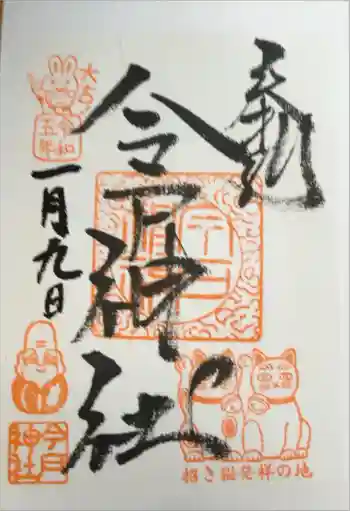 奉拝
今戸神社
今戸神社
招き猫発祥の地
大吉
令和
五年
一月九日
今戸
神社